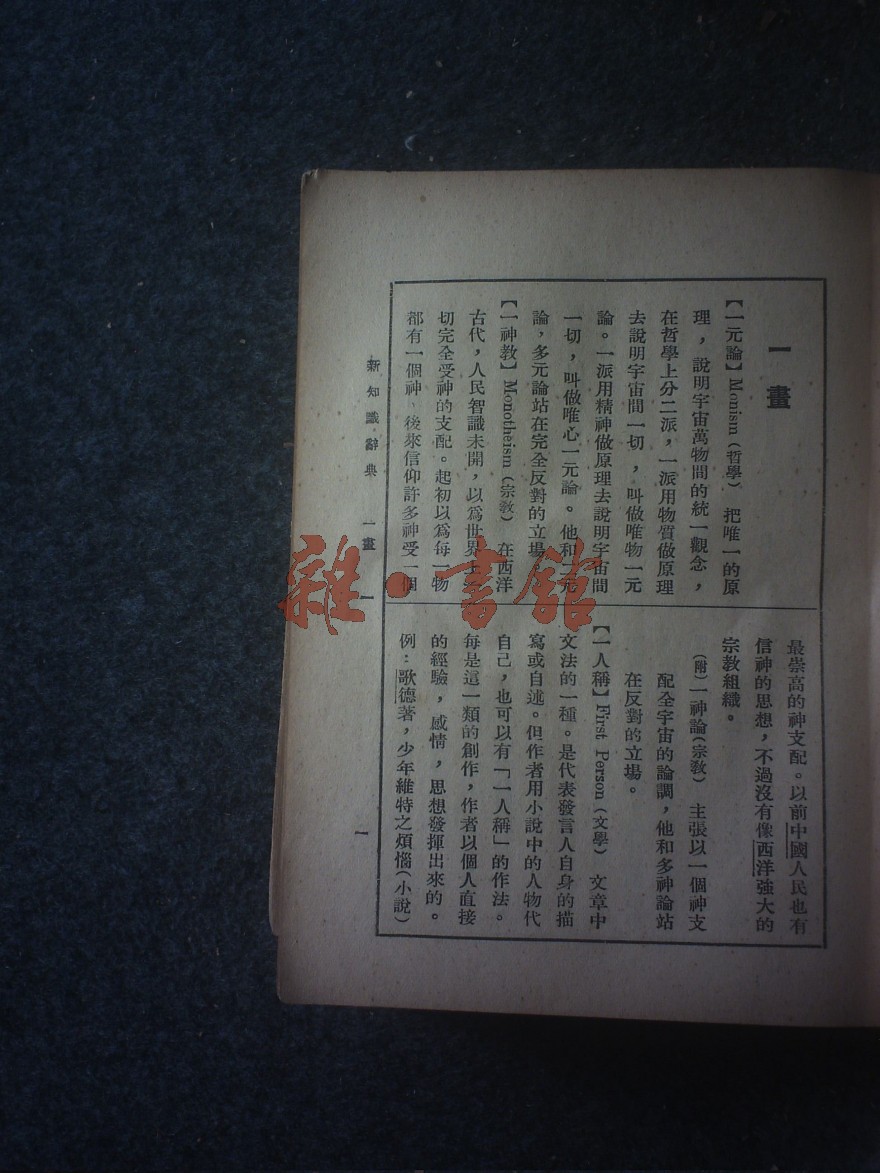 一畫
【一元論】Monism（哲學） 把唯一的原
理，說明宇宙萬物間的統一觀念，
在哲學上分二派，一派用物質做原理
去說明宇宙間一切，叫做唯物一元
論。一派用精神做原理去說明宇宙間
一切，叫做唯心一元論。他和二元
論，多元論站在完全反對的立場。
【一神教】Monotheism（宗敎） 在西洋
古代，人民智識未開，以爲世界上一
切完全受神的支配。起初以爲每一物
都有一個神、後來信仰許多神受一個
最崇高的神支配。以前中國人民也有
信神的思想，不過沒有像西洋強大的
宗教組織。
（附）一神論（宗敎） 主張以一個神支
配全宇宙的論調，他和多神論站
在反對的立場。
【一人稱】First Person（文學） 文章中
文法的一種。是代表發言人自身的描
寫或自述。但作者用小說中的人物代
自己，也可以有「一人稱」的作法。
每是這一類的創作，作者以個人直接
的經驗，感情，思想發揮出來的。
例：歌德著，少年維特之煩惱（小說）
新知識辭典 一畫 一
一
雜·書館